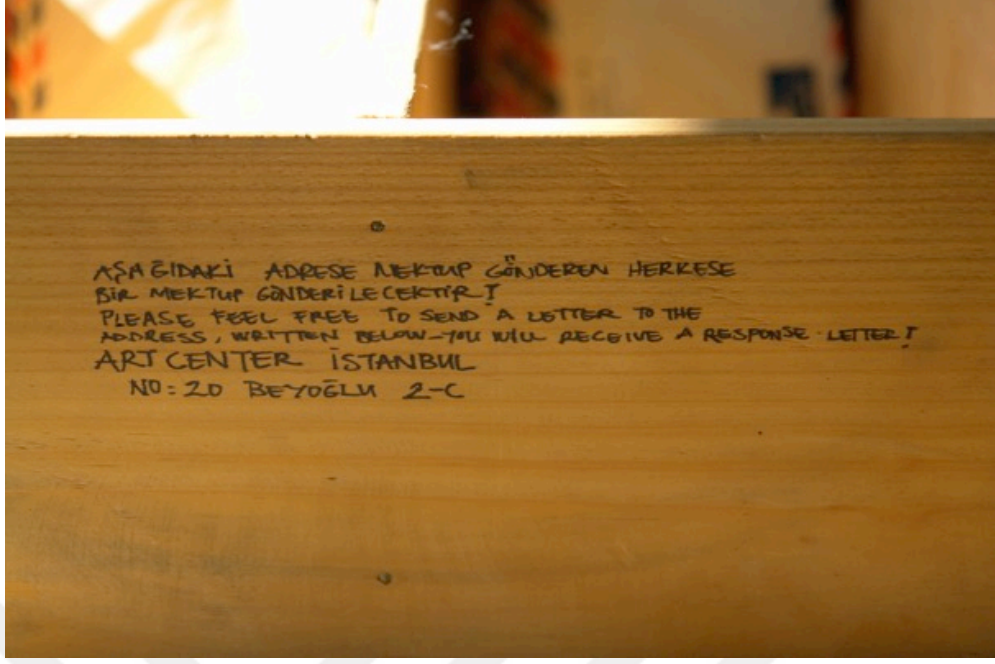 AŞAĞIDAKİ ADRESE MEKTUP GÖNDEREN HERKESE
BİR MEKTUP GÖNDERİLECEKTİR!
PLEASE FEEL FREE TO SEND A LETTER TO THE
ADDRESS, WRITTEN BELOW-YOU WILL RECEIVE A RESPONSE LETTER!
ART CENTER İSTANBUL
NO:20 BEYOĞLU 2-C